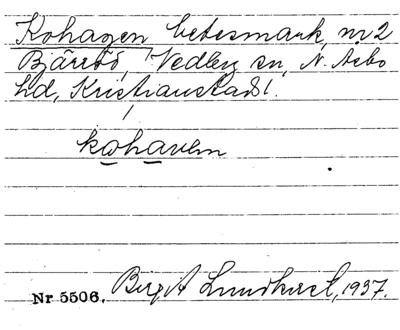 Kohagen betesmark, nr 2
Bjärröd, Vedby sn, N. Åsbo
hd, Kristianstads l.
kohaven
Nr 5506. Birgit Lundkvist, 1937.